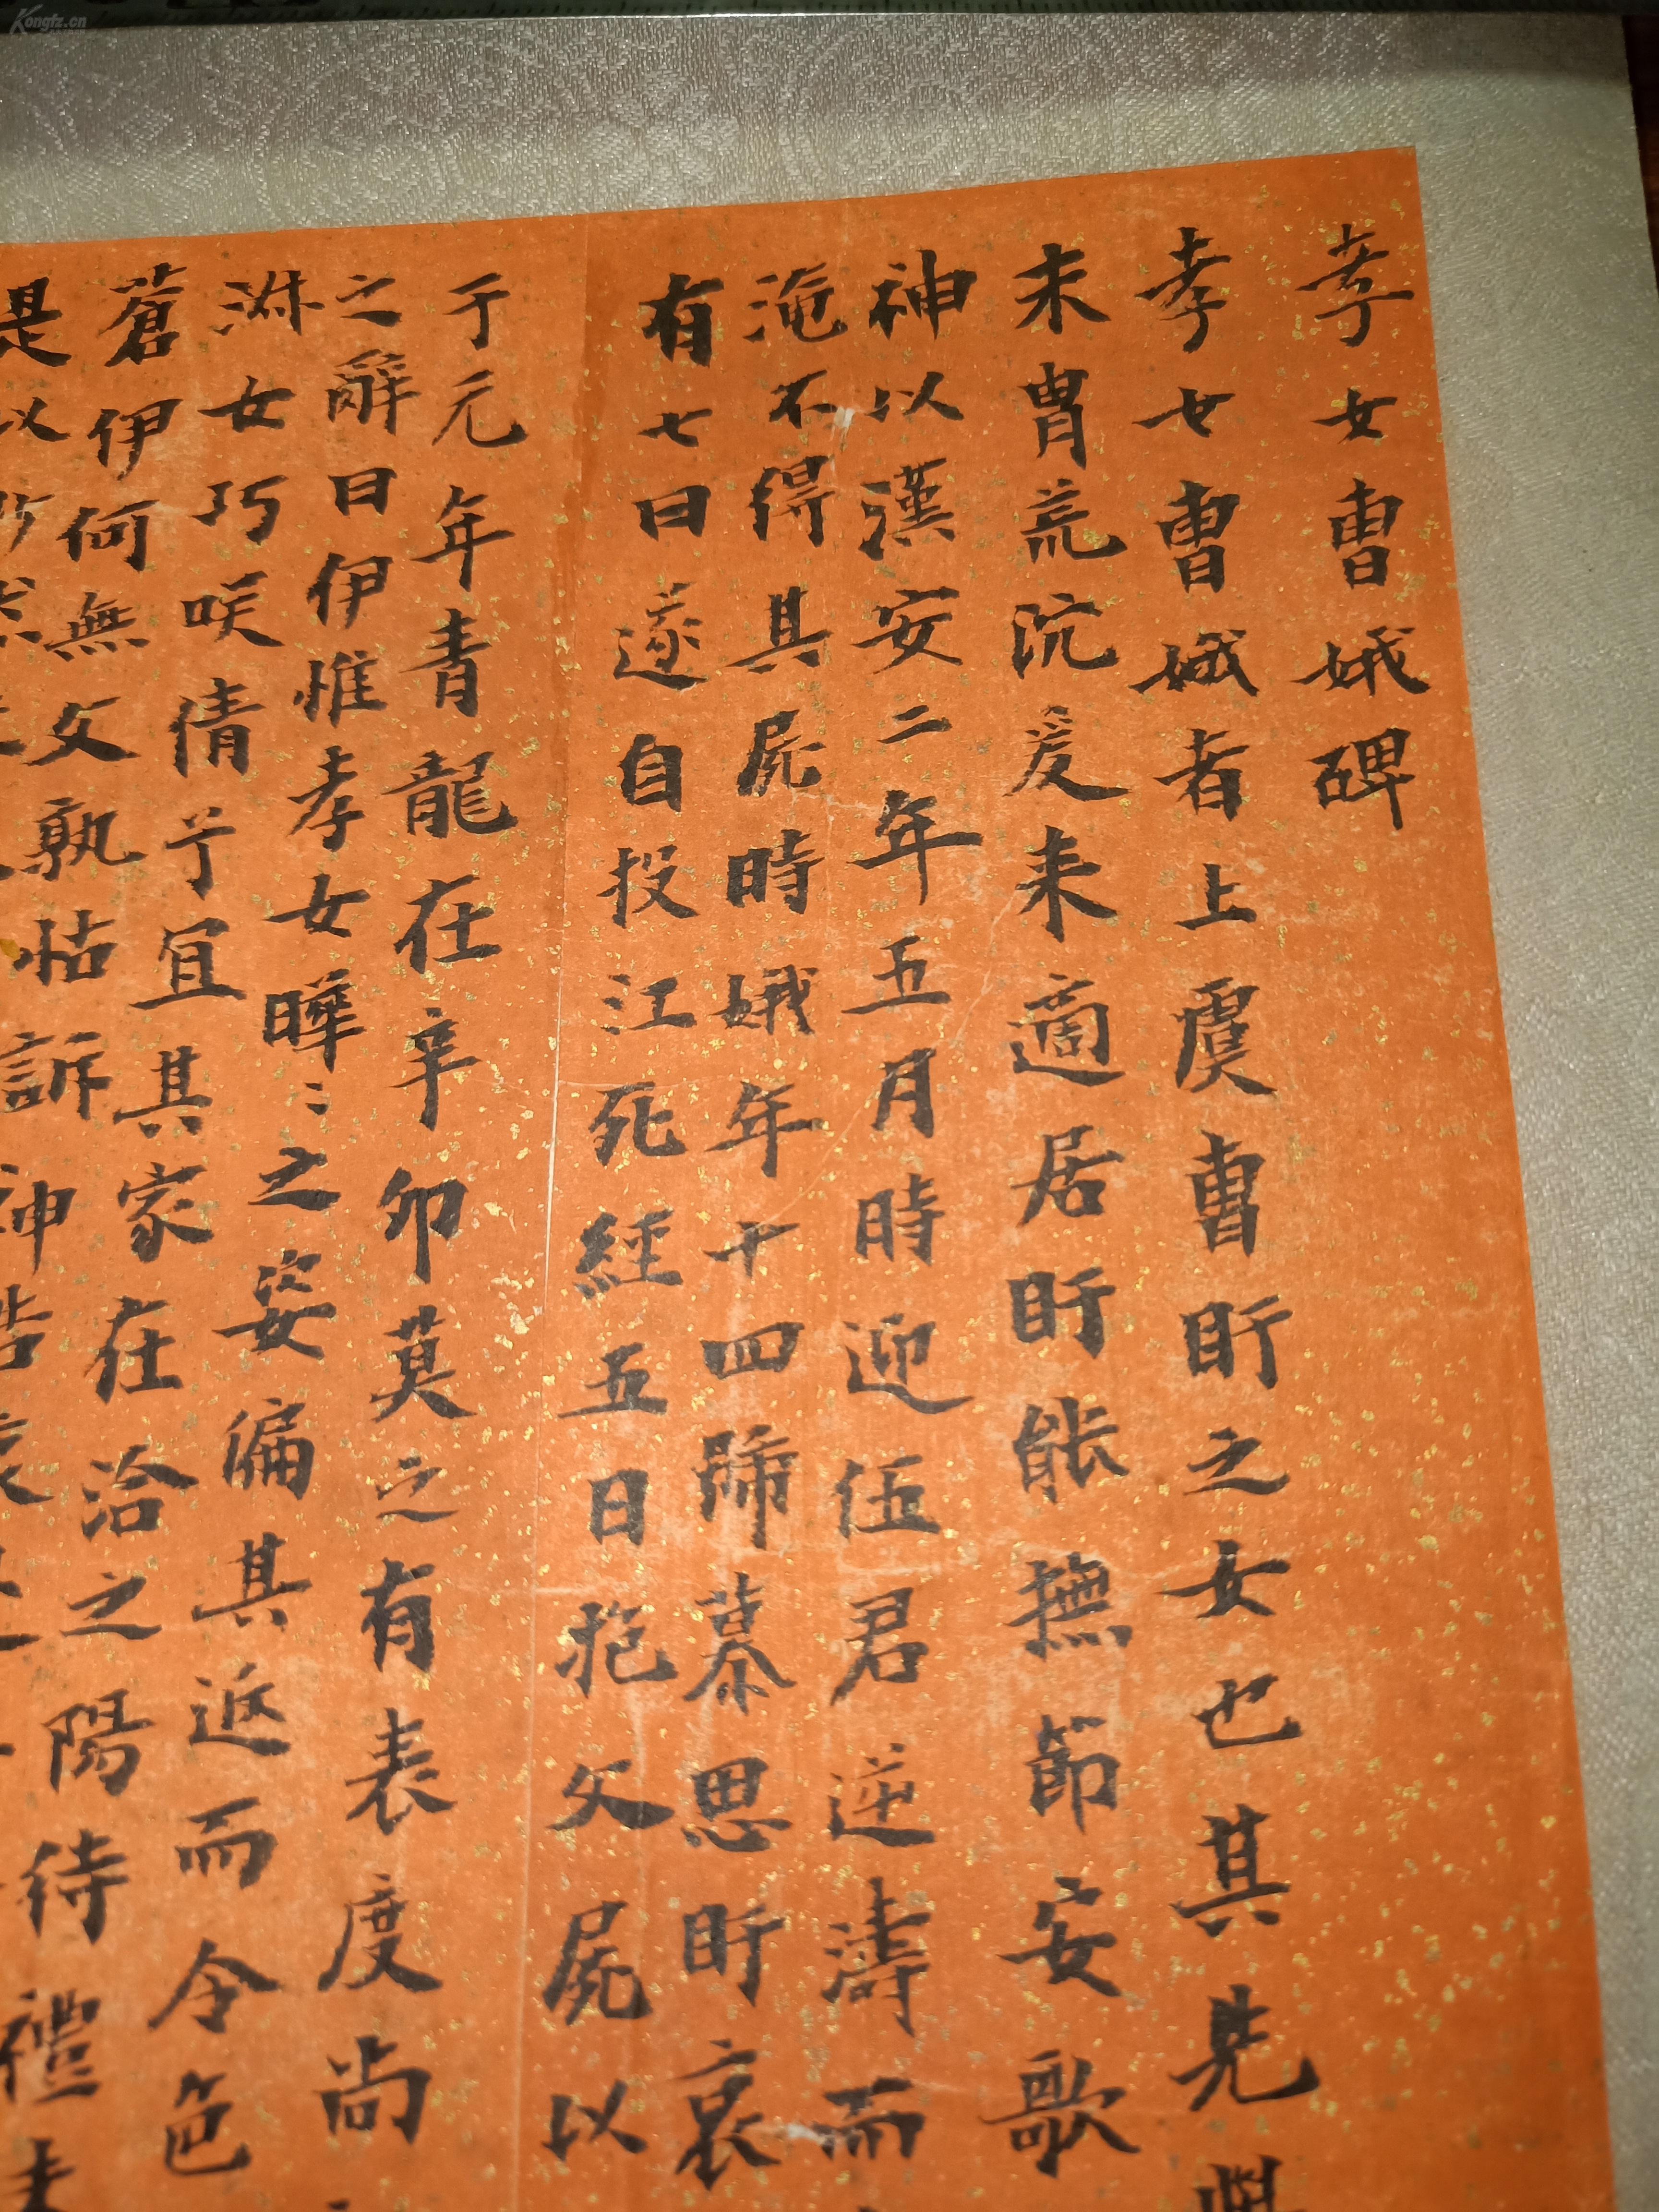 孝女曹娥碑
孝女曹娥者上虞曹盱之女也其先與
末胄荒沉爰来適居盱能撫節安歌
神以漢安二年五月時迎伍君逆濤而
淹不得其屍時娥年十四號慕思盱哀
有七日遂自投江死經五日抱父屍以
于元年青龍在辛卯莫之有表度尚
之辭曰伊惟孝女曄〻之姿偏其返而令色
淑女巧咲倩兮宜其家在洽之陽待禮未
蒼伊何無父孰怙訴神告哀
是以
Kongfz.cn